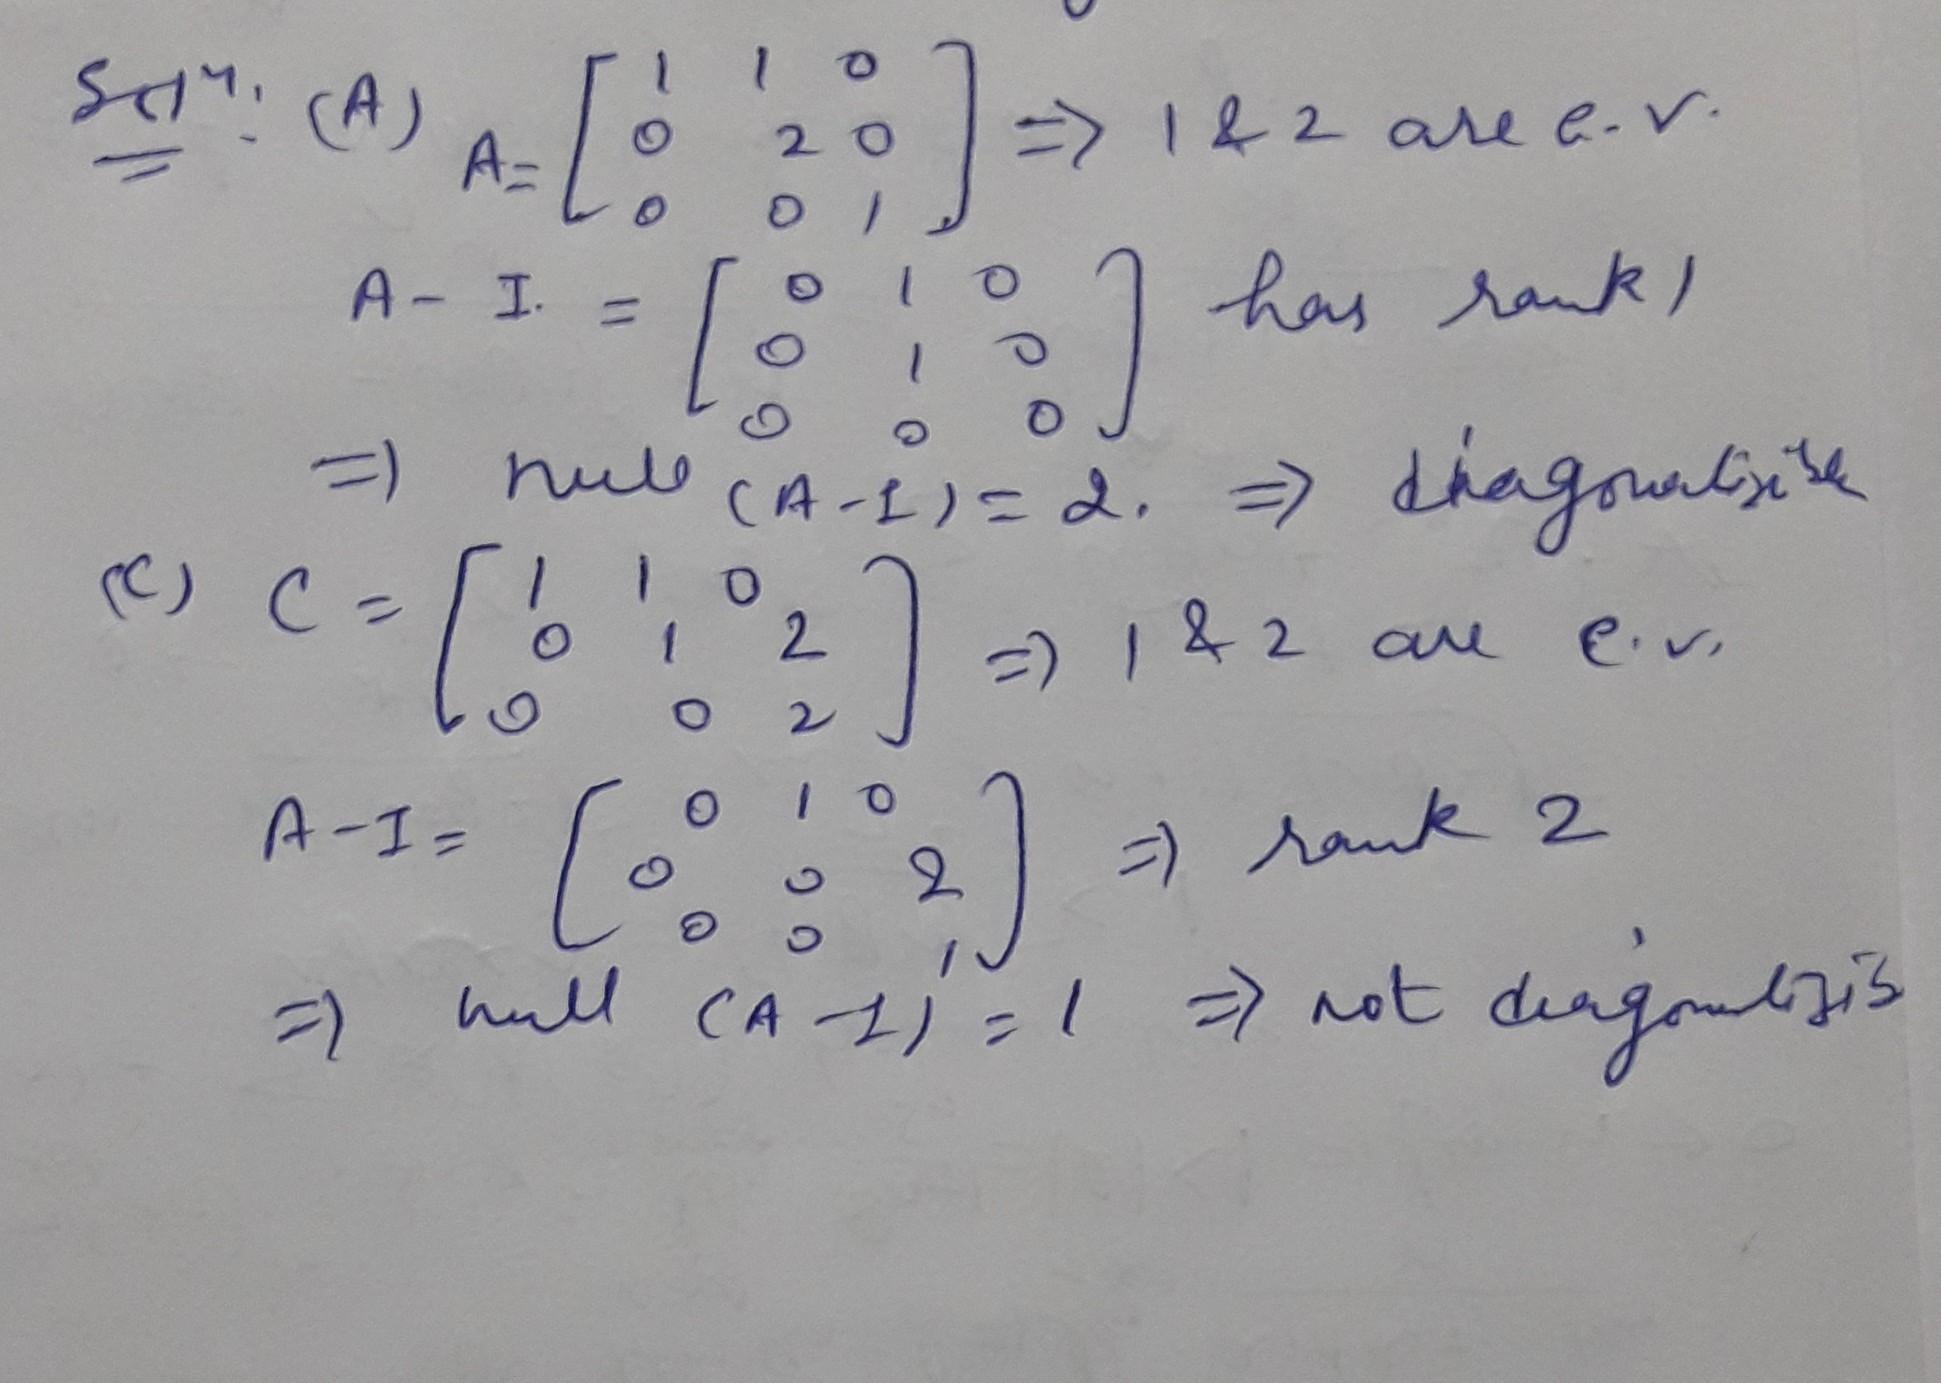 Solⁿ: (A) A = [ 1 1 0
0 2 0
0 0 1 ] => 1 & 2 are e.v.
A - I. = [ 0 1 0
0 1 0
0 0 0 ] has rank 1
=> null (A-I) = 2. => diagonalisible
(C) C = [ 1 1 0
0 1 2
0 0 2 ] => 1 & 2 are e.v.
A - I = [ 0 1 0
0 0 2
0 0 1 ] => rank 2
=> null (A-I) = 1 => not